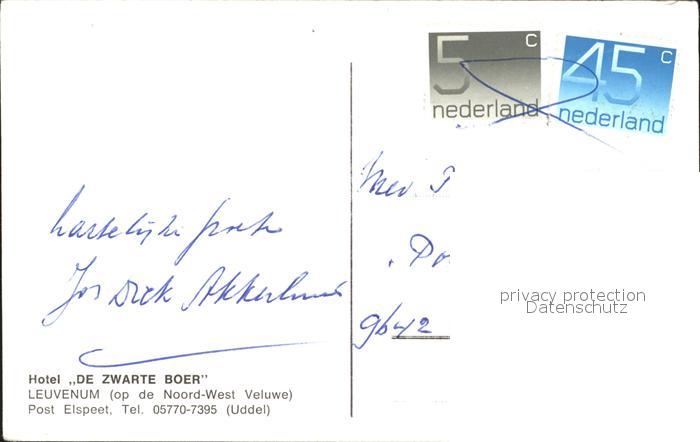 5 C
nederland
45 C
nederland
Hartelijke groet
Jos Dick
Mev
9642
privacy protection
Datenschutz
Hotel „DE ZWARTE BOER"
LEUVENUM (op de Noord-West Veluwe)
Post Elspeet, Tel. 05770-7395 (Uddel)